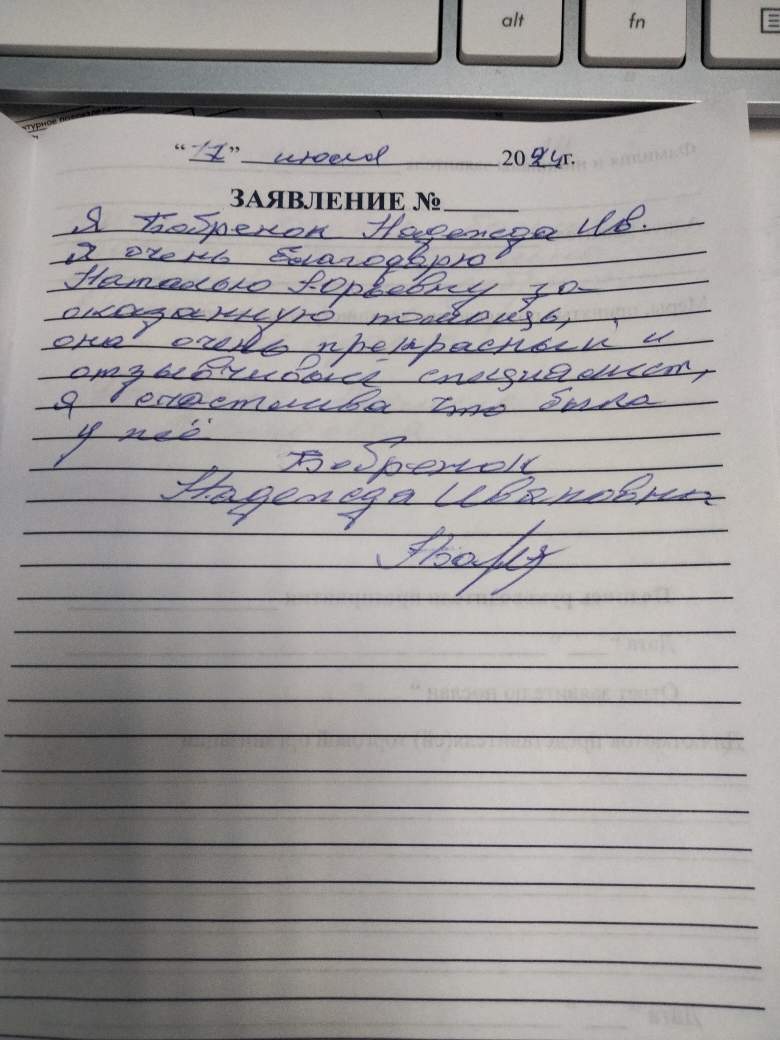 alt
fn
"17" июля 2024г.
ЗАЯВЛЕНИЕ №
Я Бобренок Надежда Ив.
Я очень благодарю
Наталью Юрьевну за
оказанную помощь,
она очень прекрасный и
отзывчивый специалист,
я счастлива что была
у неё
Бобренок
Надежда Ивановна